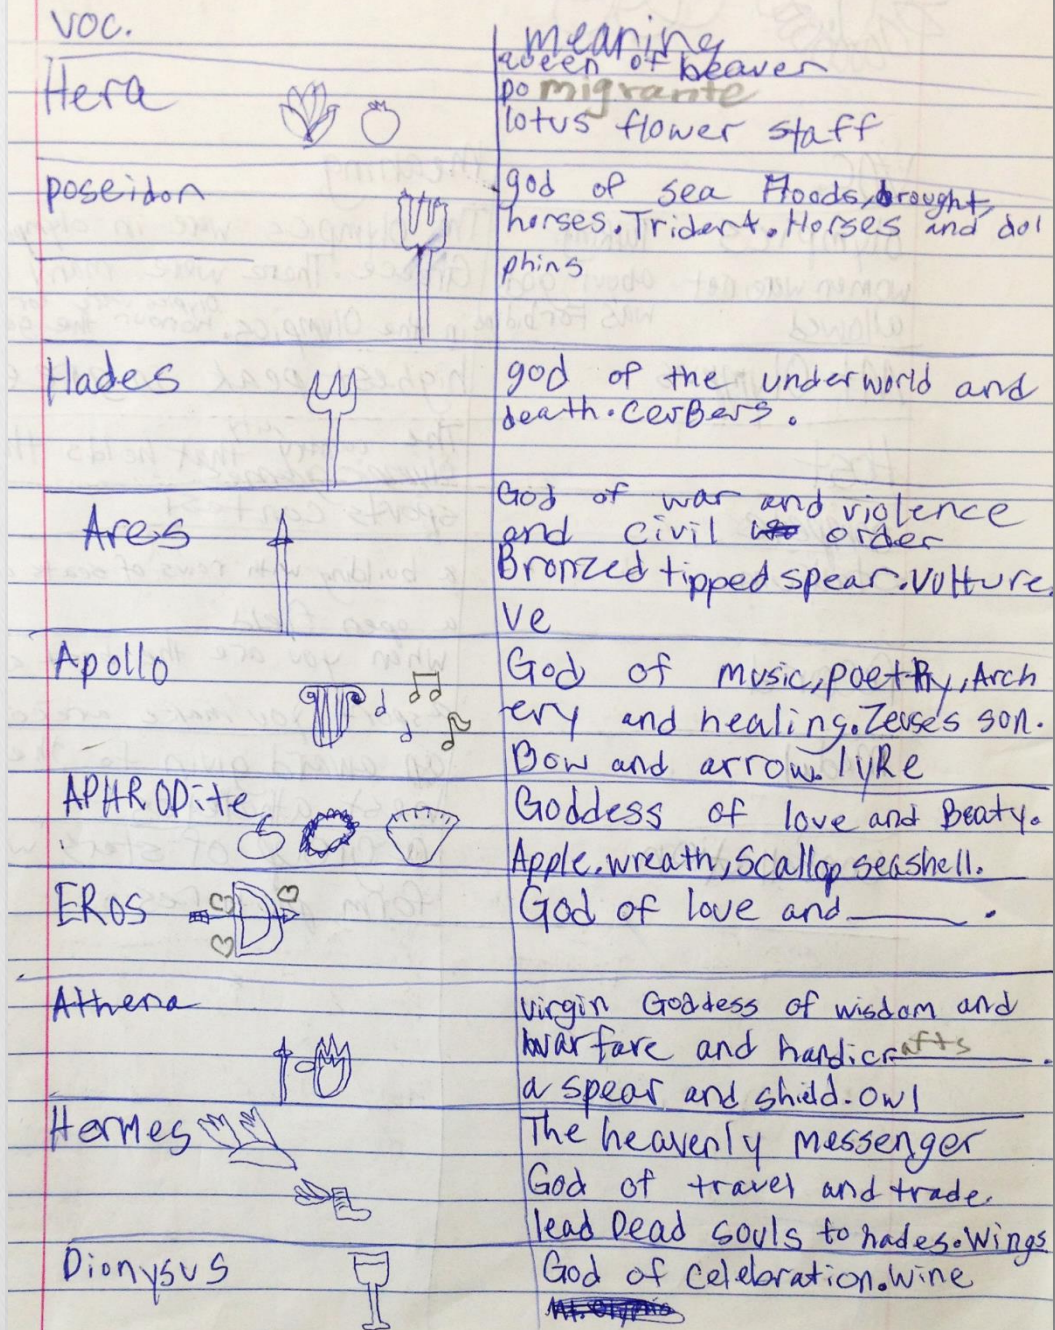 voc.
meaning
Hera
queen of heaven
pomigrante
lotus flower staff
poseidon
god of sea floods, drought,
horses. Trident. Horses and dol
phins
Hades
god of the underworld and
death. CerBers.
Ares
God of war and violence
and civil order
Bronzed tipped spear. Vulture.
Ve
Apollo
God of music, poetRy, Arch
ery and healing. Zeuses son.
Bow and arrow. lyRe
APHRODite
Goddess of love and Beaty.
Apple. wreath, Scallop seashell.
EROS
God of love and ______.
Athena
virgin Goddess of wisdom and
warfare and handicrafts.
a spear and shield. owl
Hermes
The heavenly messenger
God of travel and trade.
lead Dead souls to hades. Wings
Dionysus
God of celebration. Wine